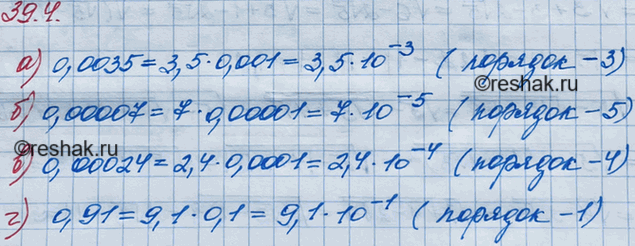 39.4.
а) 0,0035 = 3,5 · 0,001 = 3,5 · 10⁻³ ( порядок -3)
©reshak.ru
б) 0,00007 = 7 · 0,00001 = 7 · 10⁻⁵ ( порядок -5)
©reshak.ru
в) 0,00024 = 2,4 · 0,0001 = 2,4 · 10⁻⁴ ( порядок -4)
г) 0,91 = 9,1 · 0,1 = 9,1 · 10⁻¹ ( порядок -1)